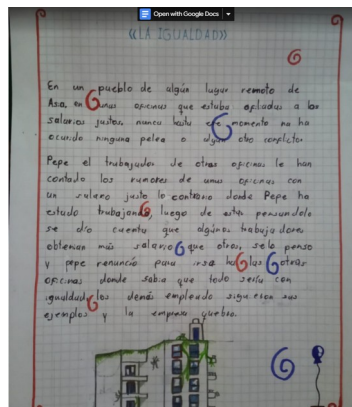 Open with Google Docs
«LA IGUALDAD»
En un pueblo de algún lugar remoto de
Asia, en unas oficinas que estaba apliadas a los
salarios justos, nunca hasta ese momento no ha
ocurido ninguna pelea o algún otro conflicto.
Pepe el trabajador de otras oficinas le han
contado los rumores de unas oficinas con
un salario justo lo contrario donde Pepe ha
estado trabajando, luego de estar pensandolo
se dio cuenta que algunos trabajadores
obtenian más salario que otros, se lo penso
y pepe renuncio para irse ha las otras
oficinas donde sabia que todo sería con
igualdad, los demás empleado siguieron sus
ejemplos y la empresa quebro.